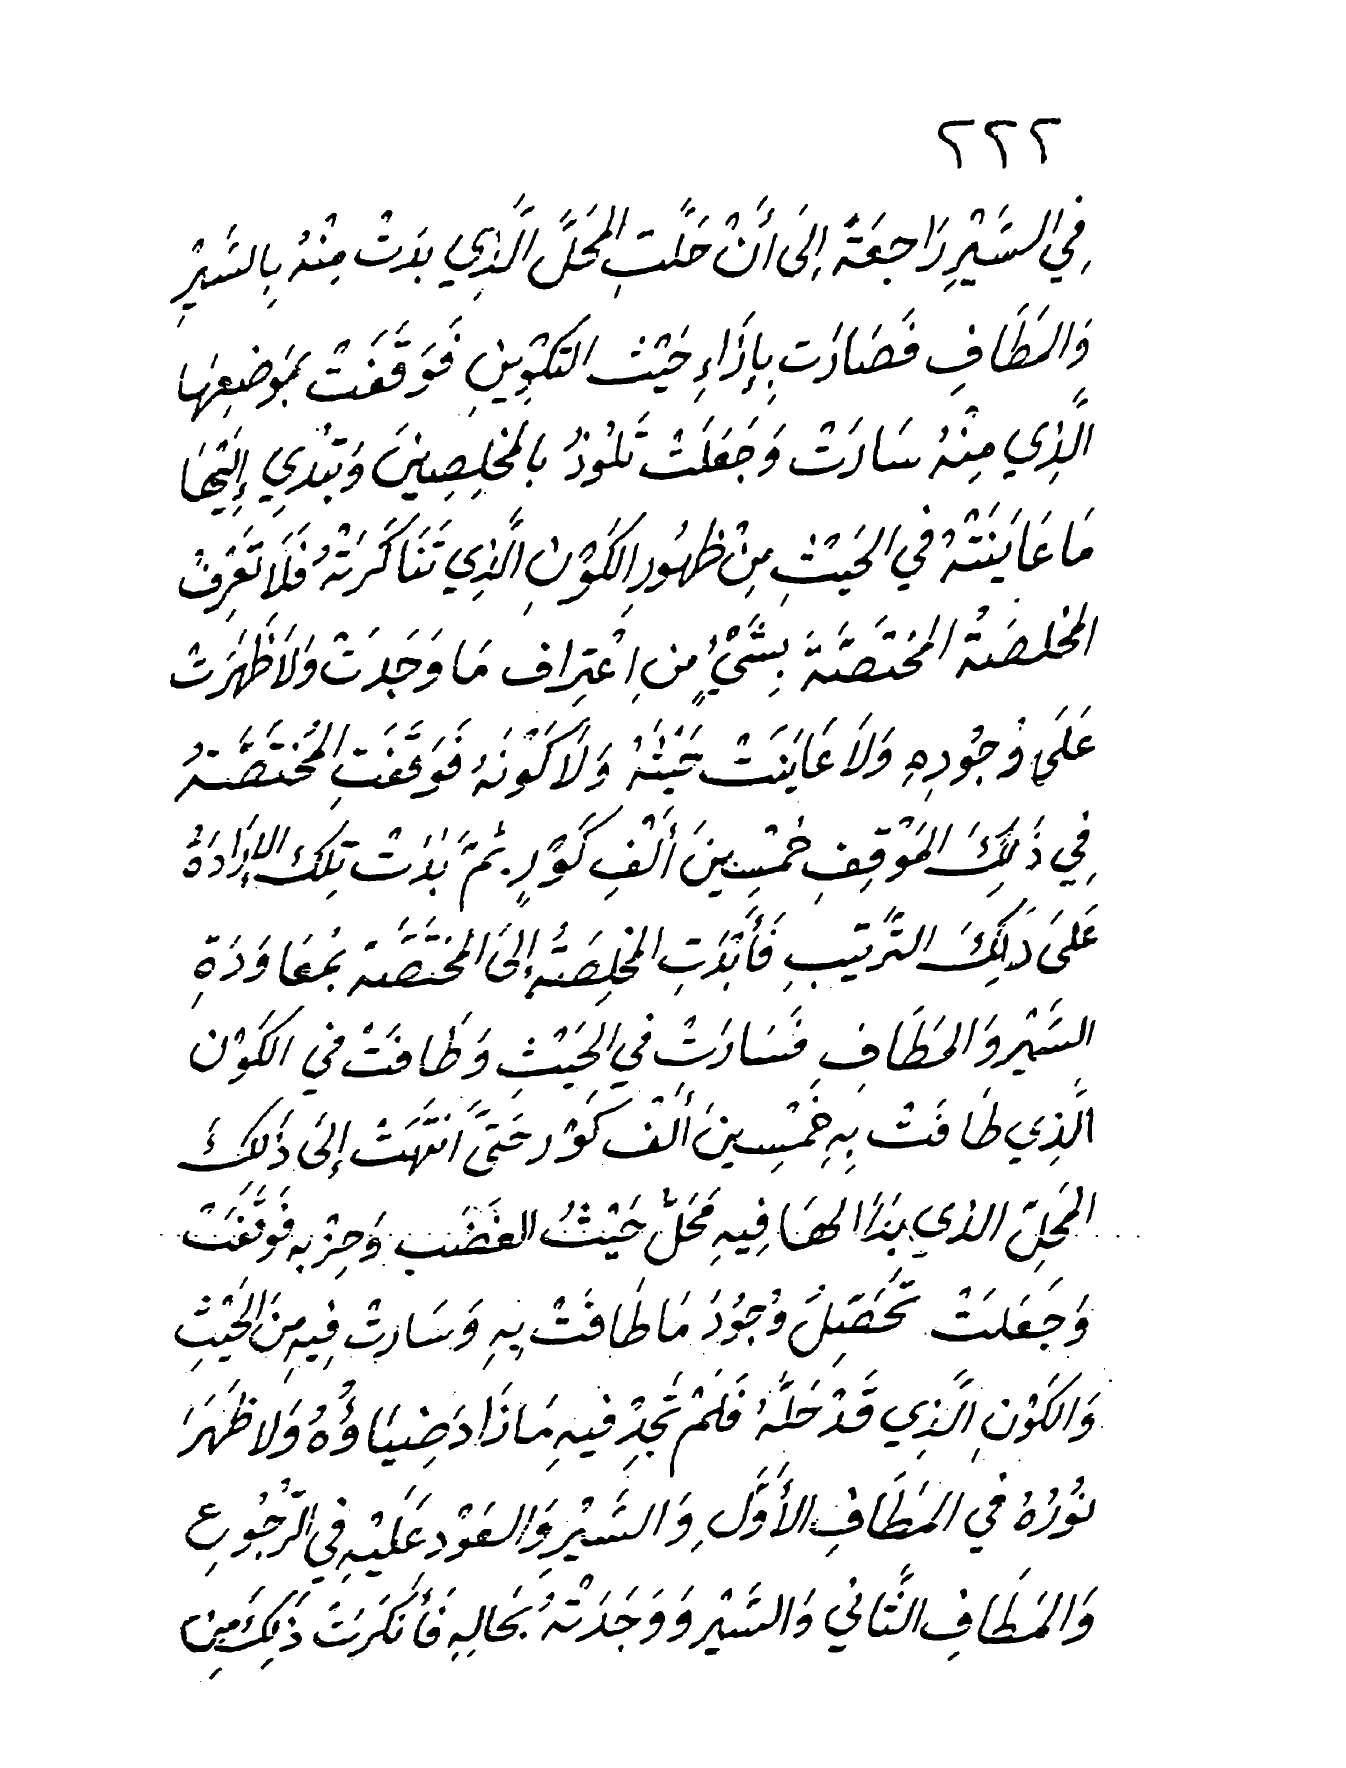 ٢٢٢
فِي السَّيْرِ رَاجِعَةً إِلَى أَنْ حَلَّتِ المَحَلَّ الَّذِي بَدَتْ مِنْهُ بِالسَّيْرِ
وَالمَطَافِ فَصَارَت بِإِزَاءِ حَيْث التكْوِينِ فَوَقَفَتْ بمَوضِعِهَا
الَّذِي مِنْهُ سَارَتْ وَجَعَلَتْ تَلُوذُ بالمخلِصِينَ وَتُبْدِي إِلَيْهَا
مَا عَايَنَتْهُ في الحَيْثِ مِنْ ظهُورِ الكَوْنِ الَّذِي تَنَاكَرَتْهُ فَلَا تَعْرِفُ
المخْلصَةُ المُخْتَصَّةَ بِشَيْءٍ مِن اِعْتِرَاف مَا وَجَدَتْ وَلاَ ظَهَرَتْ
عَلَى وُجُودِهِ وَلاَ عَايَنَتْ حَيْثُهُ وَلَا كَوْنَهُ فَوَقَفَتِ المُخْتَصَّةُ
فِي ذَلِكَ المَوْقِفِ خمْسِينَ أَلْفِ كَوْرٍ. ثمَّ بَدَتْ تِلكَ الإِرَادَةُ
عَلَى ذَلِكَ التَّرتيبِ فَأَبْدَتِ المخلِصَةُ إِلَى المخْتَصَّة بمُعَاوَدَةِ
السَّيْر وَالمَطَافِ فَسَارَتْ في الحَيْثِ وَطَافَتْ في الكَوْن
الَّذِي طَافَتْ بِهِ خَمْسِينَ أَلْف كَوْر حَتَّى انْتَهَتْ إِلَى ذَلِكَ
المَحِلّ الذي بَدَا لهَا فِيهِ مَحَلّ حَيْثُ الغَضَب وَحِزْبِه فَوقَفَتْ
وَجَعَلتْ تَحْصَلُ وُجُودُ مَا طَافَتْ بِهِ وَسَارتْ فِيهِ مِنَ الحَيْثِ
وَالكَوْنِ الَّذِي قَدْ حَلَّهُ فَلَمْ تجِدْ فيهِ مَا زَادَ ضِيَاؤُهُ وَلا ظَهَرَ
نُورُهُ في المَطَافِ الأَوَّلِ وَالسَّيْرِ وَالعَوْد عَلَيْهِ في الرُّجُوعِ
وَالمَطَافِ الثَّاني وَالسَّيْر وَوَجَدَتْهُ بحَالِهِ فَأَنْكَرَتْ ذَلِكَ مِن